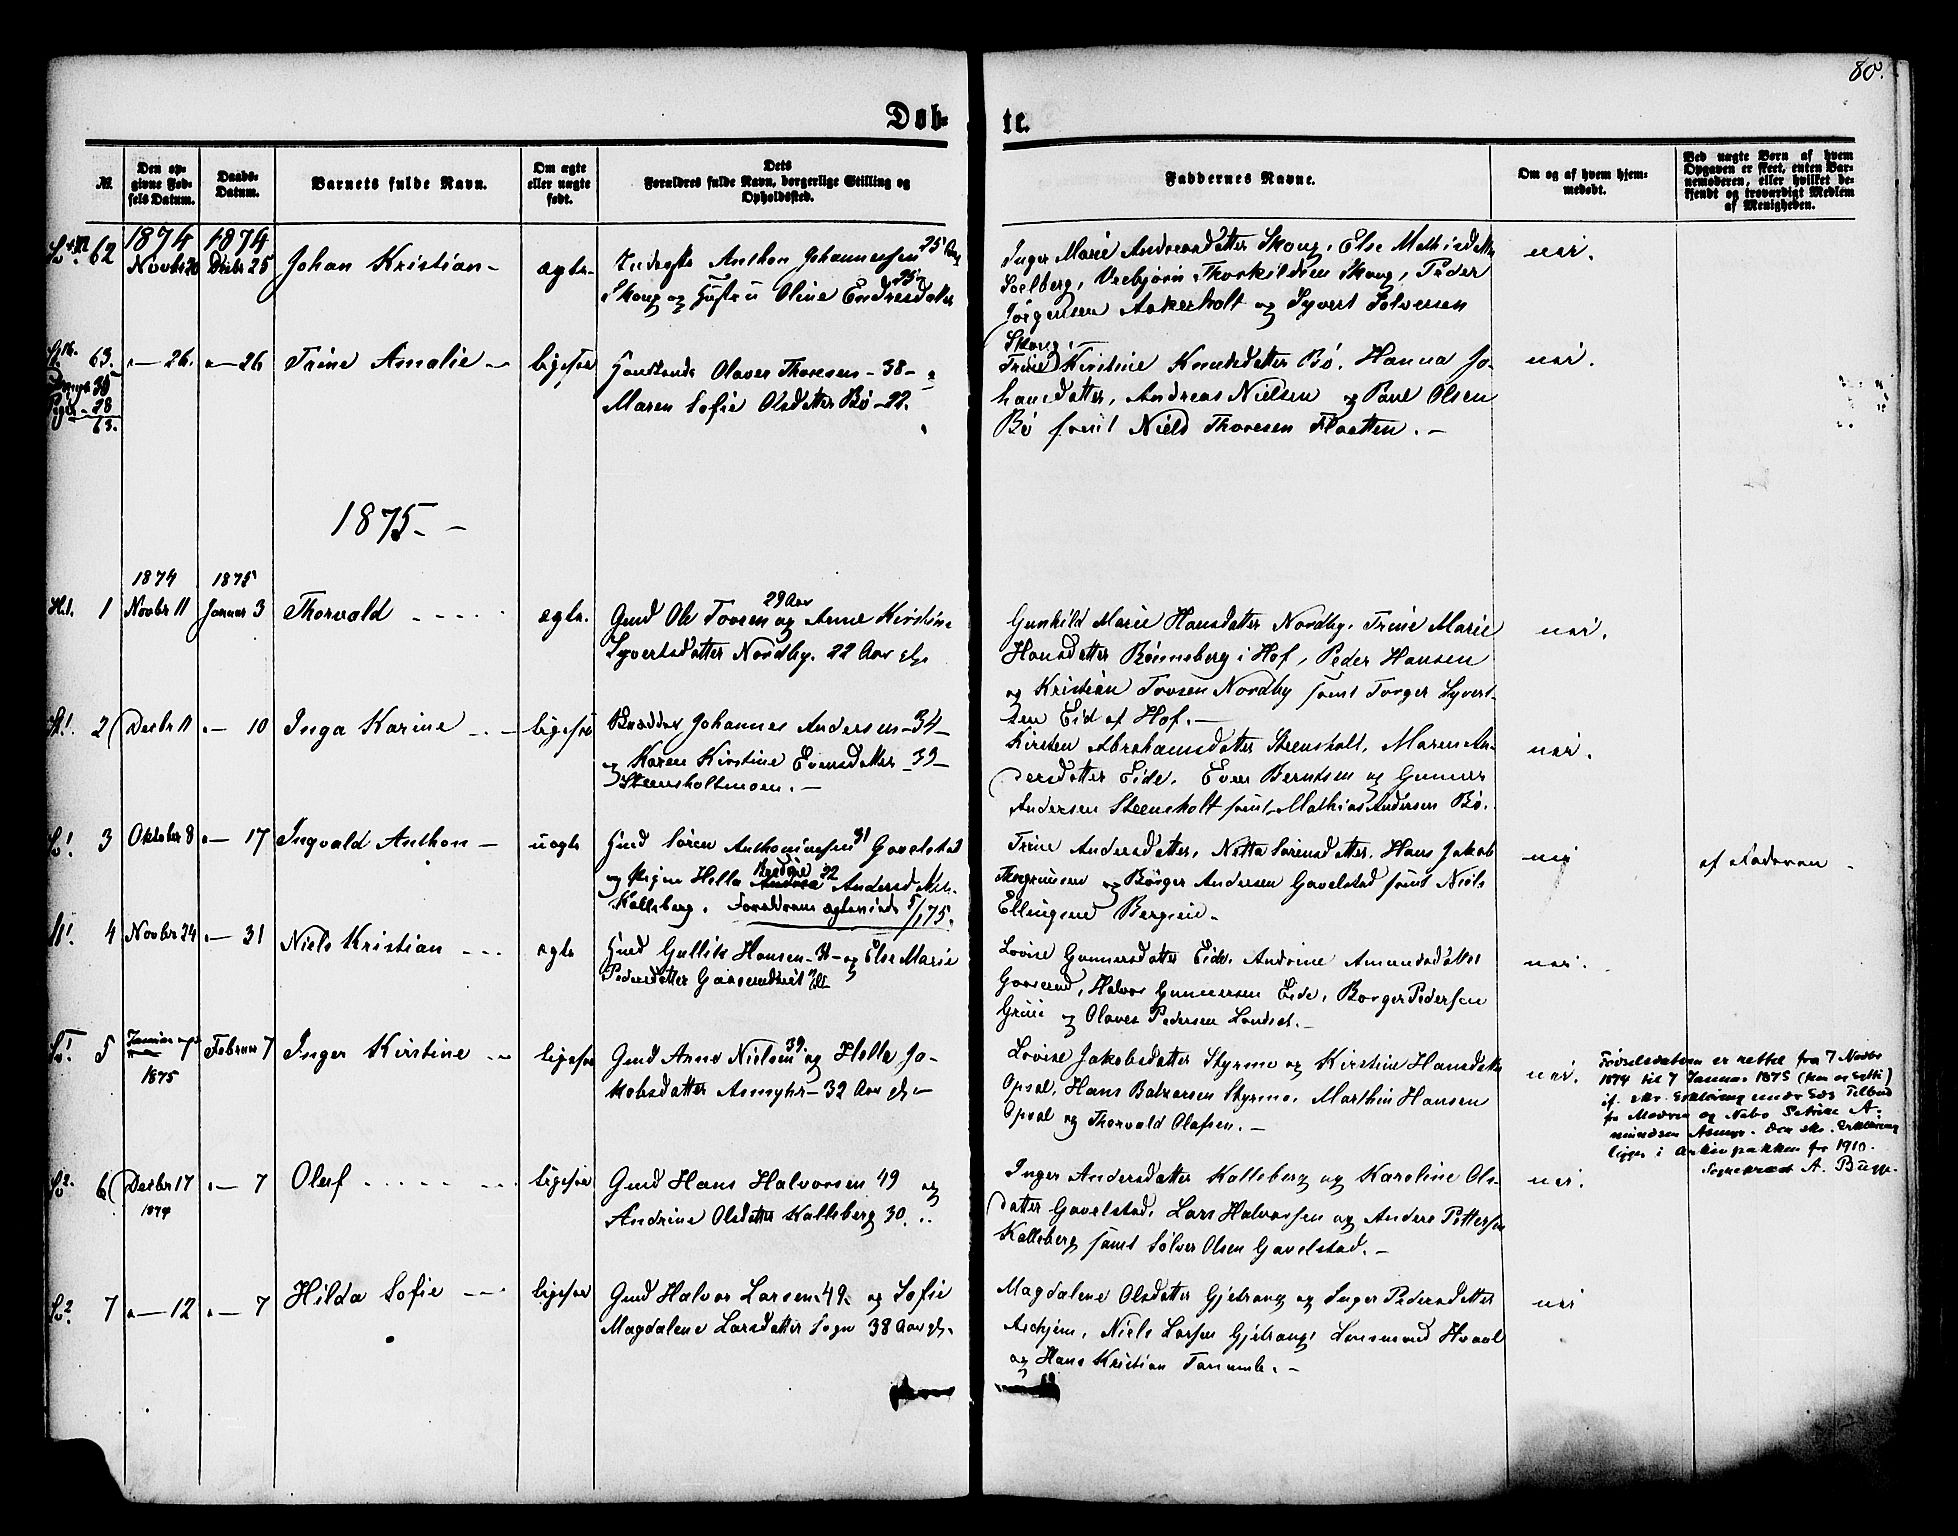 80.
Døb-
te.
№.
Den op-
givne Fød-
sels Datum.
Daabs-
Datum.
Barnets fulde Navn.
Om ægte
eller uægte
født.
Dets
Forældres fulde Navn, borgerlige Stilling og
Opholdssted.
Faddernes Navne.
Om og af hvem hjem-
medøbt.
Ved uægte Børn af hvem
Opgaven er skeet, enten Bar-
nemoderen, eller hvilket be-
kjendt og troværdigt Medlem
af Menigheden.
1874 1874
62 Novbr 20 Decbr 25 Johan Kristian - ægte - Anthon Johannessen 25 Aar
Skoug og Hustru Oline Endresdatter
Inger Marie Andreasdatter Skoug, Else Mathisdatter
Solberg, Vrebjørn Thorkildsen Skoug, Peder
Jørgensen Aakerholt og Syvert Solvesen
Skoug. -
nei.
63. " - 26. " - 26 Trine Amalie - ligesaa Huusmand Olaves Thoresen - 38 -
Maren Sofie Olsdatter Bø - 22.
Trine Kirstine Knudsdatter Bø. Hanna Jo-
hansdatter, Andreas Nielsen og Paul Olsen
Bø samt Niels Thoresen Flaatten. -
nei.
35
28
63.
1875. -
1874 1875
1 Novbr 11 Januar 3 Thorvald - - - - ægte. Gmd Ole Tovsen 29 Aar og Anne Kirstine
Syvertsdatter Nordby. 22 Aar gl.
Gunhild Marie Hansdatter Nordby, Trine Marie
Hansdatter Bønnsberg i Hof, Peder Hansen
og Kristian Tovsen Nordby samt Torger Syvert-
sen Eid af Hof. -
nei.
2 Decbr 11 " - 10 Inga Karine - - ligesaa Johannes Andersen - 34 -
og Karen Kirstine Evensdatter - 39 -
Steensholtmoen. -
Kirsten Abrahamsdatter Steensholt, Maren An-
dersdatter Eide, Even Berntsen og Gunner
Andersen Steensholt samt Mathias Andersen Bø.
nei.
3 Oktober 8 " - 17 Ingvald Anthon - uægte Gmd Søren Anthoniussen 31 Gavelstad
og Pigen Helle Andrea 32 Andersdatter
Kalleberg. Forældrene ægteviede 5/1 75.
Trine Andersdatter, Netta Sørensdatter, Hans Jakob
Thorgrimsen og Børger Andersen Gavelstad samt Niels
Ellingsen Bergene -
nei
af Faderen -
4 Novbr 24 " - 31 Niels Kristian - - - ægte Gmd Gullik Hansen - 31 - og Else Marie
Pedersdatter
Lovise Gunnersdatter Eide, Andrine Amundsdatter
Gaaserud, Halvor Gunnersen Eide, Borger Pedersen
Grine og Olaves Pedersen Landset. -
nei.
5 Januar 7 Februar 7 Inger Kirstine - ligesaa Gmd Arne Nielsen 39 og Helle Ja-
1875
kobsdatter Asmyhr - 32 Aar gl. -
Lovise Jakobsdatter Styrmo og Kirstine Hansdatter
Opsal, Hans Balzersen Styrmo, Marthin Hansen
Opsal og Thorvald Olafsen. -
nei.
Fødselsdatoen er rettet fra 7 Novbr
1874 til 7 Januar 1875
fra Moderen og Nabo A-
mundsen Asmyr. Den skr. Erklæring
ligger i Arkivpakken for 1910.
Sogneprest A. Bugge
6 Decbr 17 " - 7 Oluf - - - - - ligesaa Gmd Hans Halvorsen 49 og
1874
Andrine Olsdatter Kalleberg 30. "
Inger Andersdatter Kalleberg og Karoline Ols-
datter Gavelstad, Lars Halvorsen og Anders Pettersen
Kalleberg samt Sølver Olsen Gavelstad. -
nei.
7 " - 12 " - 7 Hilda Sofie - - - ligesaa Gmd Halvor Larsen 49. og Sofie
Magdalene Larsdatter Sogn 38 Aar gl. -
Magdalene Olsdatter Gjelrang og Inger Pedersdatter
Askjem, Niels Larsen Gjelrang, Hvaal
og Hans Kristian Tanumb. -
nei